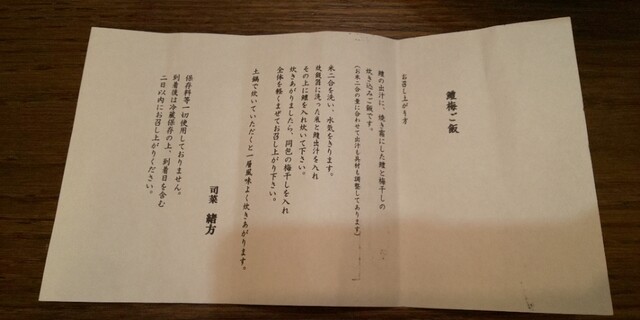 鱧梅ご飯
お召し上がり方
鱧の出汁に、焼き霜にした鱧と梅干しの
炊き込みご飯です。
（お米二合の量に合わせて出汁も具材も調整してあります）
米二合を洗い、水気をきります。
炊飯器に洗った米と鱧出汁を入れ
その上に鱧を入れ炊いて下さい。
炊きあがりましたら、同包の梅干しを入れ
全体を軽くまぜてお召し上がり下さい。
土鍋で炊いていただくと一層風味よく炊きあがります。
司菜 緒方
保存料等一切使用しておりません。
到着後は冷蔵保存の上、到着日を含む
二日以内にお召し上がりください。